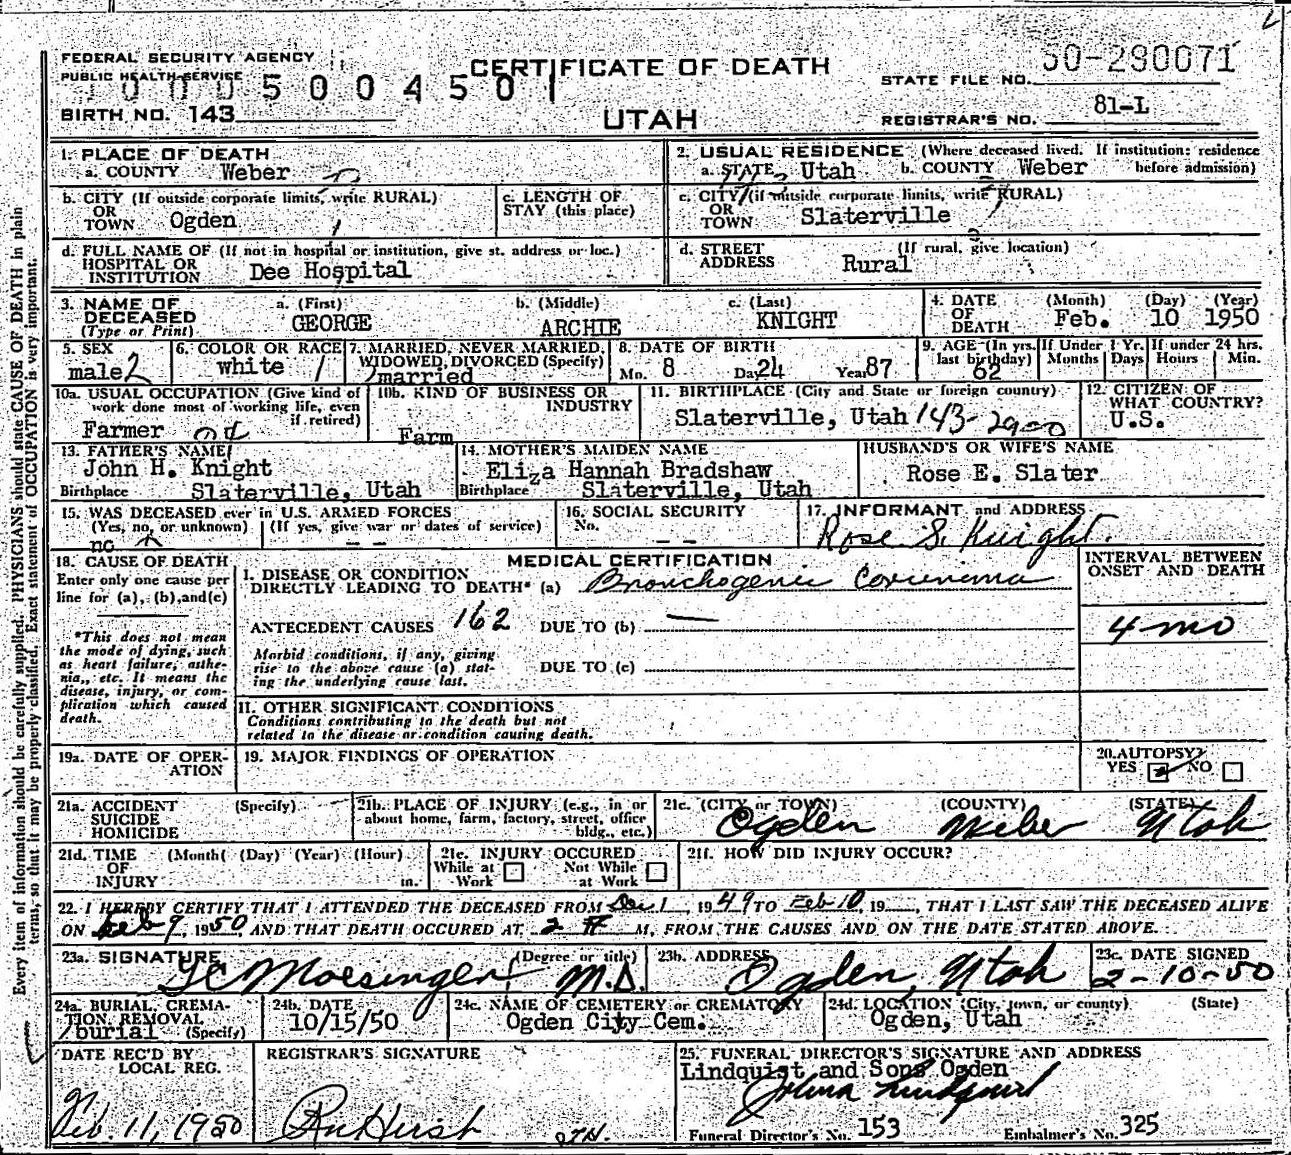 FEDERAL SECURITY AGENCY
PUBLIC HEALTH SERVICE
CERTIFICATE OF DEATH
UTAH
5004501
BIRTH NO. 143
STATE FILE NO. 50-290071
REGISTRAR'S NO. 81-L
1. PLACE OF DEATH
a. COUNTY Weber
2. USUAL RESIDENCE (Where deceased lived. If institution: residence before admission)
a. STATE Utah b. COUNTY Weber
b. CITY (If outside corporate limits, write RURAL)
OR
TOWN Ogden
c. LENGTH OF
STAY (this place)
c. CITY (if outside corporate limits, write RURAL)
OR
TOWN Slaterville
d. FULL NAME OF (If not in hospital or institution, give st. address or loc.)
HOSPITAL OR
INSTITUTION Dee Hospital
d. STREET (If rural, give location)
ADDRESS Rural
3. NAME OF
DECEASED
(Type or Print)
a. (First) GEORGE
b. (Middle) ARCHIE
c. (Last) KNIGHT
4. DATE
OF
DEATH
(Month) (Day) (Year)
Feb. 10 1950
5. SEX
male 2
6. COLOR OR RACE
white 1
7. MARRIED, NEVER MARRIED,
WIDOWED, DIVORCED (Specify)
married
8. DATE OF BIRTH
Mo. 8 Day 24 Year 87
9. AGE (In yrs. last birthday)
62
If Under 1 Yr.
Months Days
If under 24 hrs.
Hours Min.
10a. USUAL OCCUPATION (Give kind of
work done most of working life, even
if retired)
Farmer
10b. KIND OF BUSINESS OR
INDUSTRY
Farm
11. BIRTHPLACE (City and State or foreign country)
Slaterville, Utah 143-2900
12. CITIZEN OF
WHAT COUNTRY?
U.S.
13. FATHER'S NAME
John H. Knight
Birthplace Slaterville, Utah
14. MOTHER'S MAIDEN NAME
Eliza Hannah Bradshaw
Birthplace Slaterville, Utah
HUSBAND'S OR WIFE'S NAME
Rose E. Slater
15. WAS DECEASED ever in U.S. ARMED FORCES
(Yes, no, or unknown) (If yes, give war or dates of service)
no - -
16. SOCIAL SECURITY
No.
- -
17. INFORMANT and ADDRESS
Rose S. Knight.
18. CAUSE OF DEATH
Enter only one cause per
line for (a), (b), and(c)
*This does not mean
the mode of dying, such
as heart failure, asthe-
nia,, etc. It means the
disease, injury, or com-
plication which caused
death.
MEDICAL CERTIFICATION
I. DISEASE OR CONDITION
DIRECTLY LEADING TO DEATH* (a) Bronchogenic Carcinoma
ANTECEDENT CAUSES 162 DUE TO (b) —
Morbid conditions, if any, giving
rise to the above cause (a) stat-
ing the underlying cause last.
DUE TO (c)
II. OTHER SIGNIFICANT CONDITIONS
Conditions contributing to the death but not
related to the disease or condition causing death.
INTERVAL BETWEEN
ONSET AND DEATH
4 mo
19a. DATE OF OPER-
ATION
19. MAJOR FINDINGS OF OPERATION
20. AUTOPSY?
YES NO
21a. ACCIDENT (Specify)
SUICIDE
HOMICIDE
21b. PLACE OF INJURY (e.g., in or
about home, farm, factory, street, office
bldg., etc.)
21c. (CITY or TOWN) (COUNTY) (STATE)
Ogden Weber Utah
21d. TIME (Month( (Day) (Year) (Hour)
OF
INJURY m.
21e. INJURY OCCURED
While at Work Not While at Work
21f. HOW DID INJURY OCCUR?
22. I HEREBY CERTIFY THAT I ATTENDED THE DECEASED FROM Dec 1, 1949 TO Feb 10, 19 , THAT I LAST SAW THE DECEASED ALIVE
ON Feb 9, 1950 AND THAT DEATH OCCURED AT 2 M, FROM THE CAUSES AND ON THE DATE STATED ABOVE.
23a. SIGNATURE (Degree or title)
Moesinger M.D.
23b. ADDRESS
Ogden, Utah
23c. DATE SIGNED
2-10-50
24a. BURIAL, CREMA-
TION, REMOVAL
burial (Specify)
24b. DATE
10/15/50
24c. NAME OF CEMETERY or CREMATORY
Ogden City Cem.
24d. LOCATION (City, town, or county) (State)
Ogden, Utah
DATE REC'D BY
LOCAL REG.
Feb. 11, 1950
REGISTRAR'S SIGNATURE
25. FUNERAL DIRECTOR'S SIGNATURE AND ADDRESS
Lindquist and Sons Ogden
Funeral Director's No. 153 Embalmer's No. 325
Every item of information should be carefully supplied. PHYSICIANS should state CAUSE OF DEATH in plain
terms, so that it may be properly classified. Exact statement of OCCUPATION is very important.